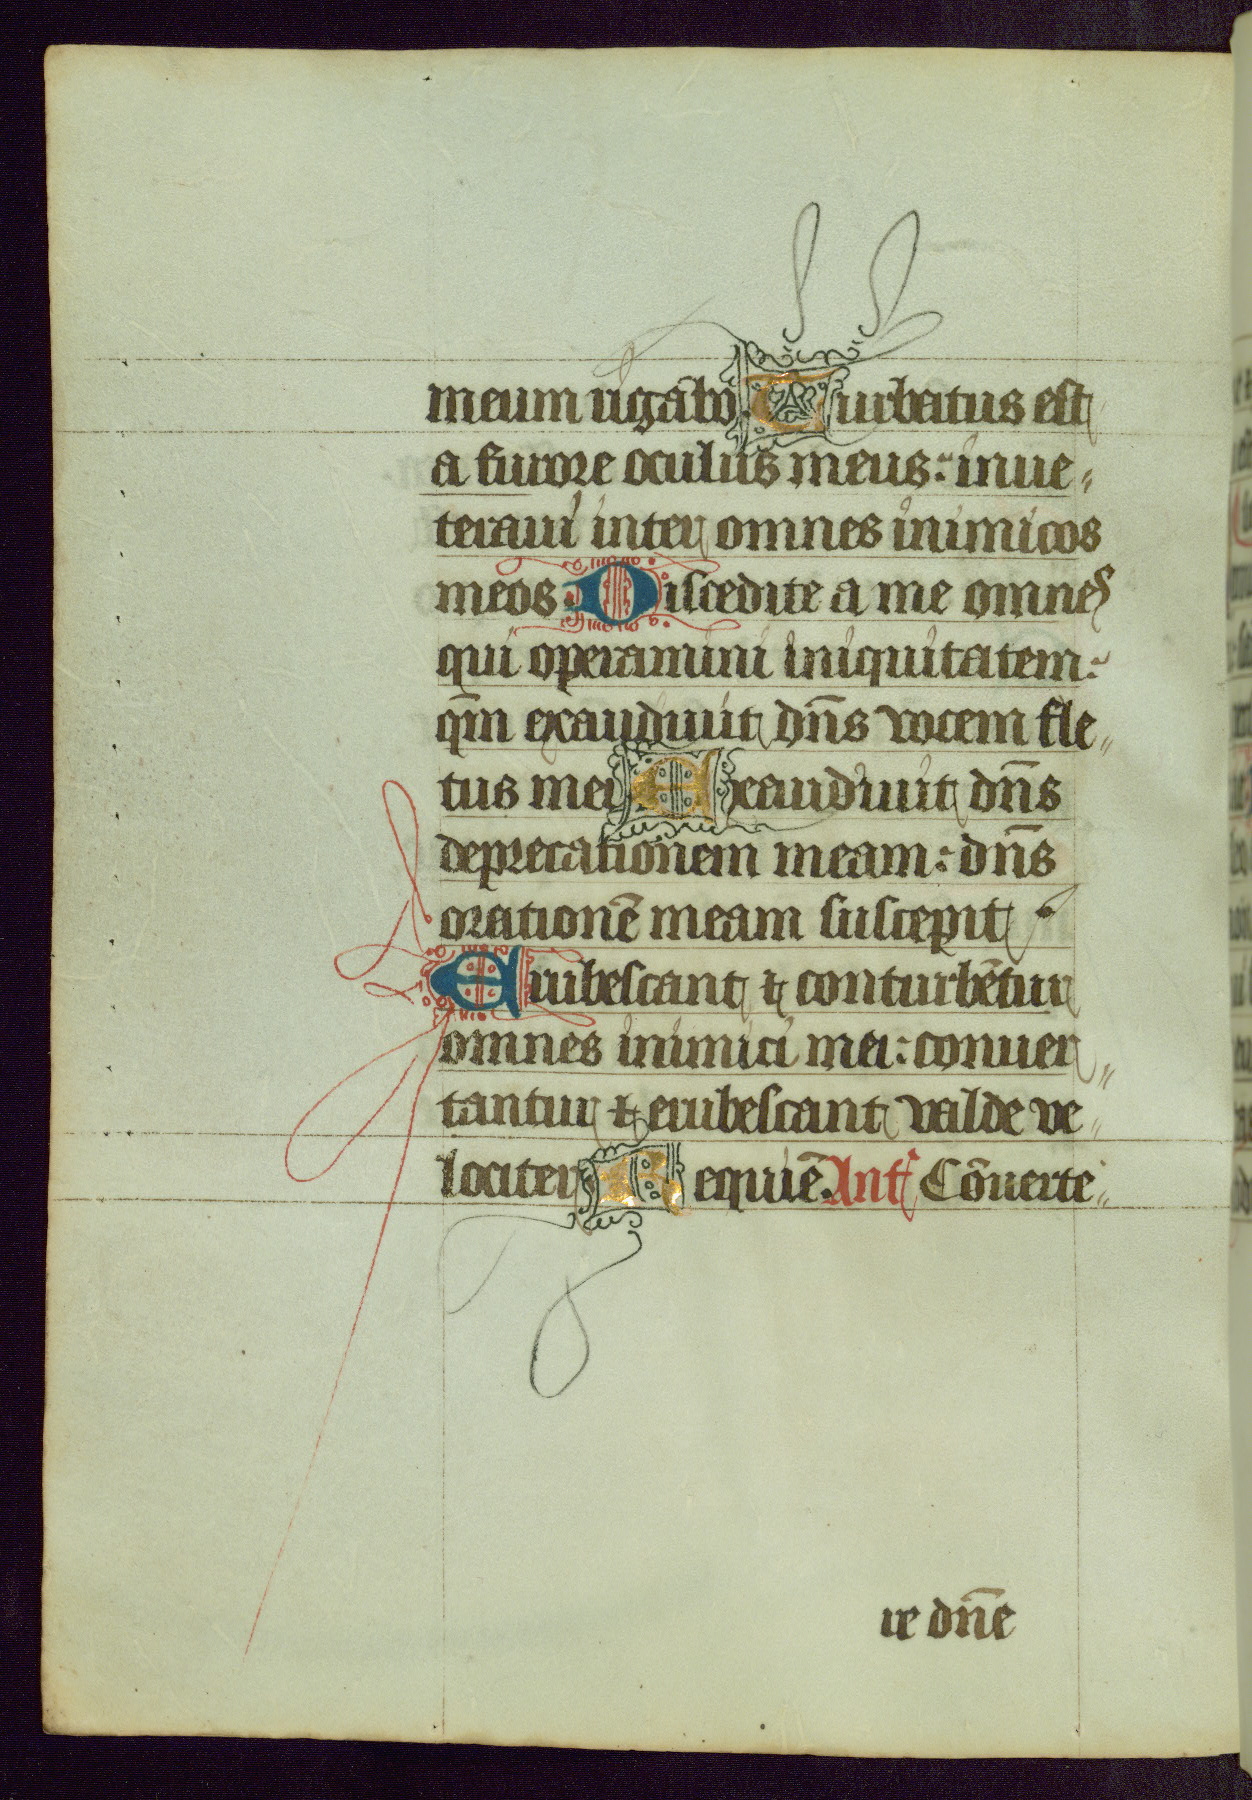 meum rigabo. Turbatus est
a furore oculus meus: inue„
teraui inter omnes inimicos
meos Discedite a me omnes
qui operamini iniquitatem:
qm̄ exaudiuit dn̄s vocem fle„
tus mei Exaudiuit dn̄s
deprecationem meam: dn̄s
orationē meam suscepit
Erubescant ⁊ conturbētur
omnes inimici mei: conuer„
tantur ⁊ erubescant valde ve„
lociter Requiē. Anẜ Cōuerte„
re dn̄e